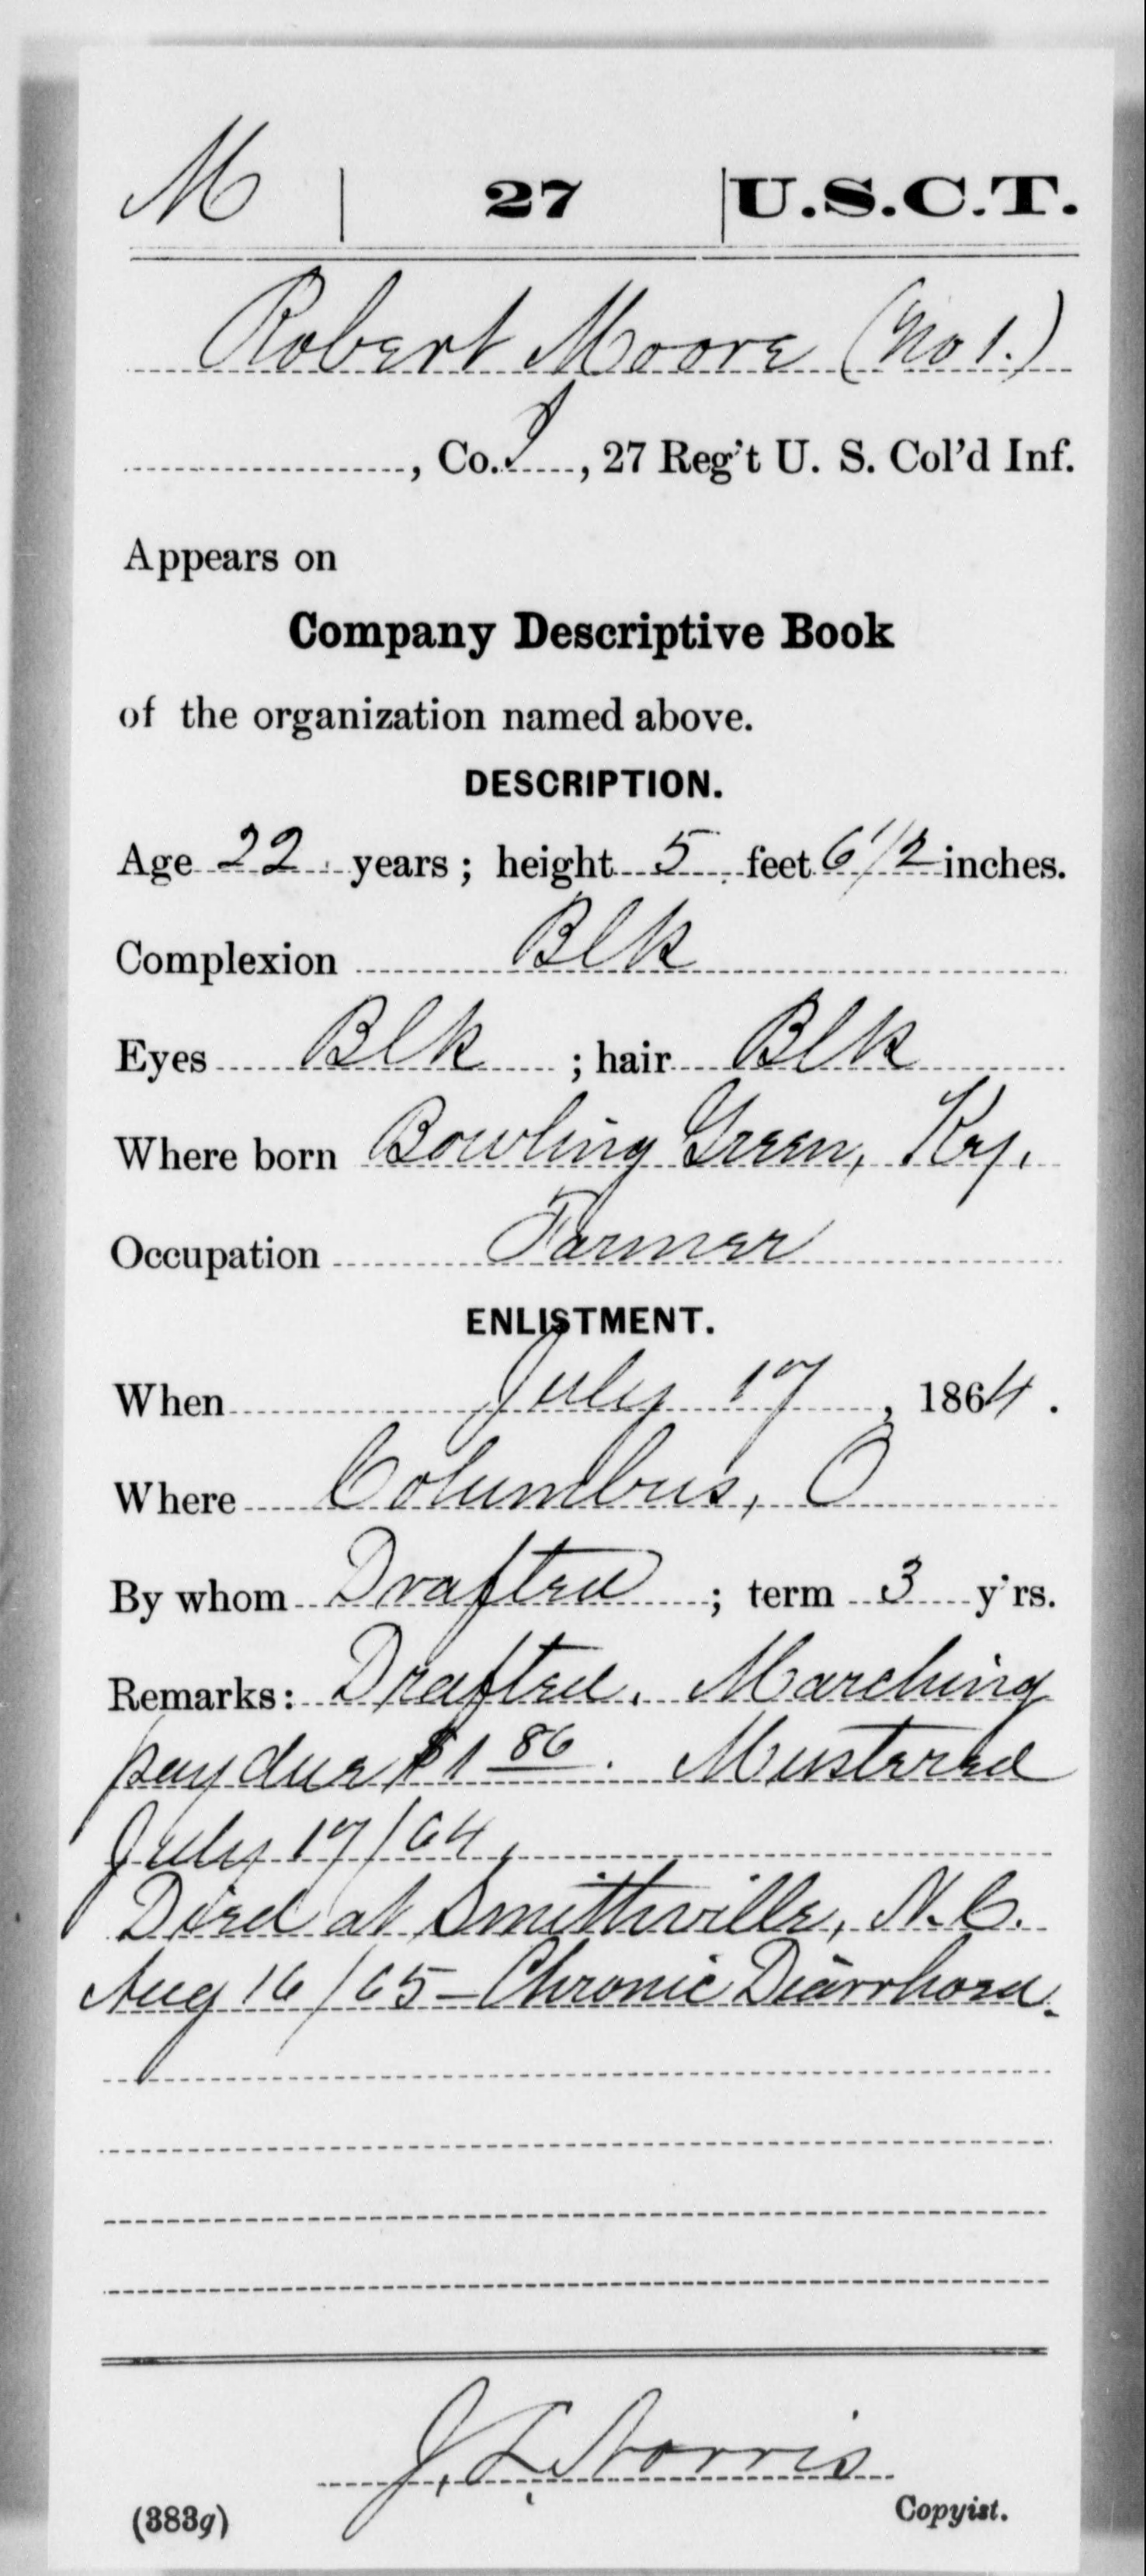 M | 27 | U.S.C.T.
Robert Moore (No 1.)
, Co. I, 27 Reg't U. S. Col'd Inf.
Appears on
Company Descriptive Book
of the organization named above.
DESCRIPTION.
Age 22 years; height 5 feet 6 1/2 inches.
Complexion Blk
Eyes Blk ; hair Blk
Where born Bowling Green, Ky.
Occupation Farmer
ENLISTMENT.
When July 17, 1864.
Where Columbus, O
By whom Drafted ; term 3 y'rs.
Remarks: Drafted. Marching
pay due $1 86. Mustered
July 17/64.
Died at Smithville, N.C.
Aug 16/65 – Chronic Diarrhoea.
J. L. Norris
Copyist.
(383g)